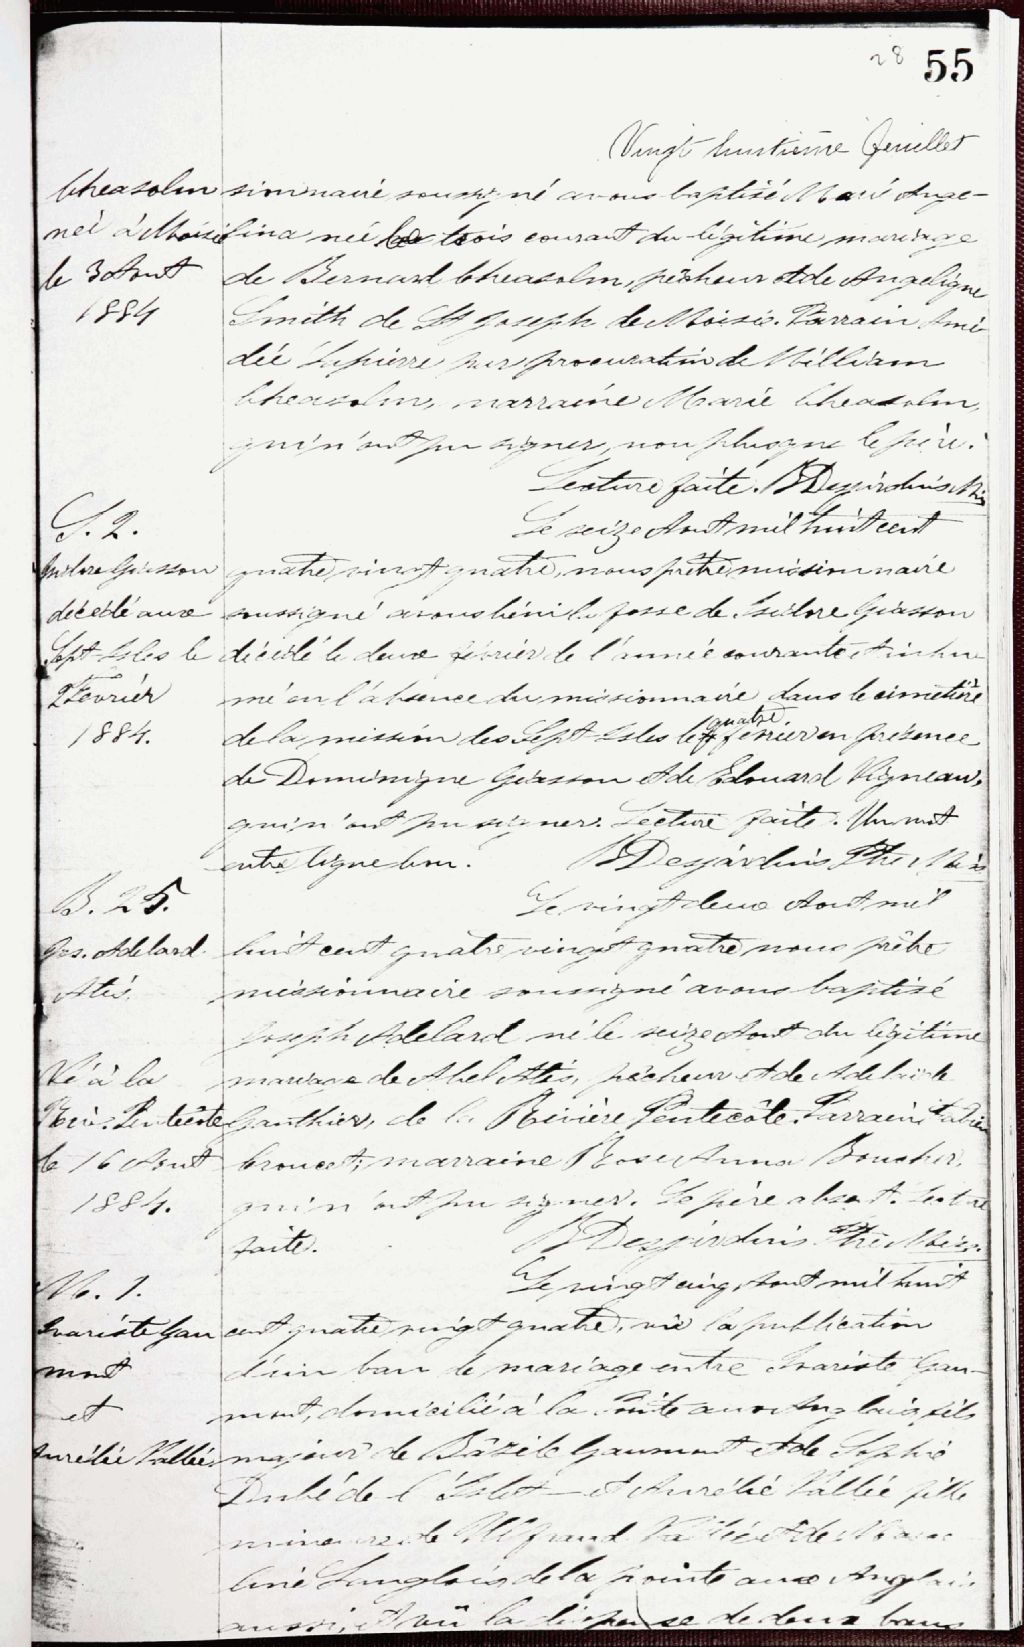 28 55
Vingt huitième feuillet
Cheasolm
née à Moisie
le 3 Aout
1884
sionnaire soussigné avons baptisé Marie Ange-
lina née le trois courant du légitime mariage
de Bernard Cheasolm, pêcheur et de Angelique
Smith de St Joseph de Moisie. Parrain Amé-
dée Lapierre par procuration de William
Cheasolm, marraine Marie Cheasolm,
qui n'ont pu signer, non plus que le père.
Lecture faite. B Desjardins
S. 2.
Isidore Giasson
décédé aux
Sept Isles le
2 Fevrier
1884.
Le seize Aout mil huit cent
quatre vingt quatre, nous prêtre missionnaire
soussigné avons béni la fosse de Isidore Giasson
décédé le deux février de l'année courante et inhu-
mé en l'absence du missionnaire dans le cimetière
quatre.
de la mission des Sept Isles le février en présence
de Dominique Giasson et de Edouard Vigneau,
qui n'ont pu signer. Lecture faite. Un mot
entre ligne bon. B Desjardins Ptre Miss
B. 25.
Jos. Adelard
Atés.
Né à la
Riv. Pentecôte
le 16 Aout
1884.
Le vingt deux Aout mil
huit cent quatre vingt quatre nous prêtre
missionnaire soussigné avons baptisé
Joseph Adelard né le seize Aout du légitime
mariage de Abel Atés, pêcheur et de Adelaide
Gauthier, de la Rivière Pentecôte. Parrain
marraine Rose Anna Boucher,
qui n'ont pu signer. Le père absent. Lecture
faite. B Desjardins Ptre Miss.
M. 1.
Evariste Gau
mont
et
Aurélie Vallée
Le vingt cinq Aout mil huit
cent quatre vingt quatre, vu la publication
d'un ban de mariage entre Evariste Gau-
mont, domicilié à la Pointe aux Anglais, fils
majeur de Bazile Gaumont et de Sophie
Dubé de l'Islet et Aurélie Vallée fille
mineure de Vallée et de
Langlois de la pointe aux Anglais
aussi, et vu la dispense de deux bans